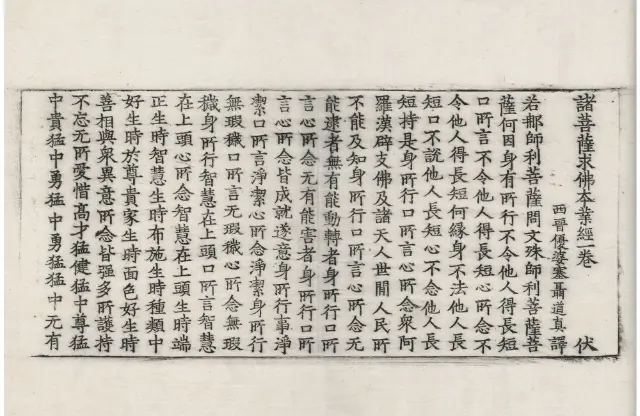 諸菩薩求佛本業經一卷 伏
西晉優婆塞聶道真譯
若那師利菩薩問文殊師利菩薩菩
薩何因身有所行不令他人得長短
口所言不令他人得長短心所念不
令他人得長短何緣身不法他人長
短口不説他人長短心不念他人長
短持是身所行口所言心所念衆阿
羅漢辟支佛及諸天人世閒人民所
不能及知身所行口所言心所念无
能逮者無有能動轉者身所行口所
言心所念无有能害者身所行口所
言心所念皆成就遂意身所行事淨
潔口所言淨潔心所念淨潔身所行
無瑕穢口所言无瑕穢心所念無瑕
穢身所行智慧在上頭口所言智慧
在上頭心所念智慧在上頭生時端
正生時智慧生時布施生時種類中
好生時於尊貴家生時面色好生時
善相與衆異意所念皆强多所護持
不忘无所愛惜高才猛健猛中尊猛
中貴猛中勇猛中勇猛猛中无有